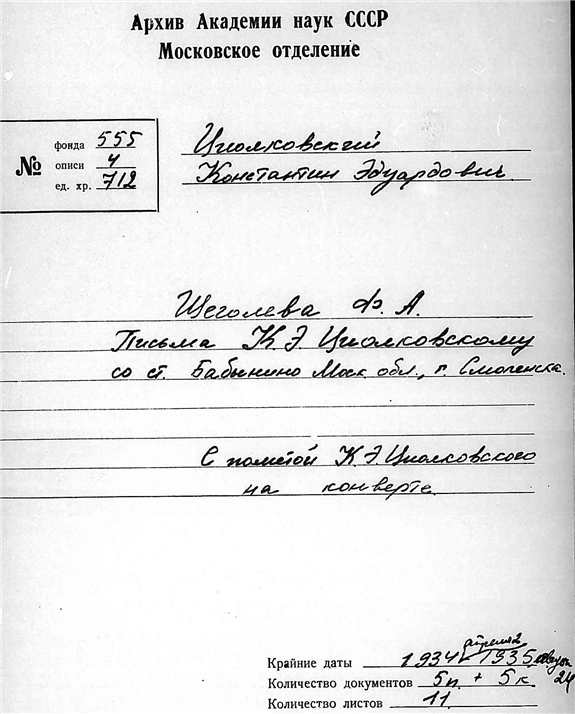 Архив Академии наук СССР
Московское отделение
№
фонда 555
описи 4
ед. хр. 712
Циолковский
Константин Эдуардович.
Щеголева Ф. А.
Письма К. Э. Циолковскому
со ст. Бабынино Моск. обл., г. Смоленска.
С пометой К. Э. Циолковского
на конверте.
Крайние даты 1934 апреля 2 - 1935 августа 24
Количество документов 5п. + 5к.
Количество листов 11.